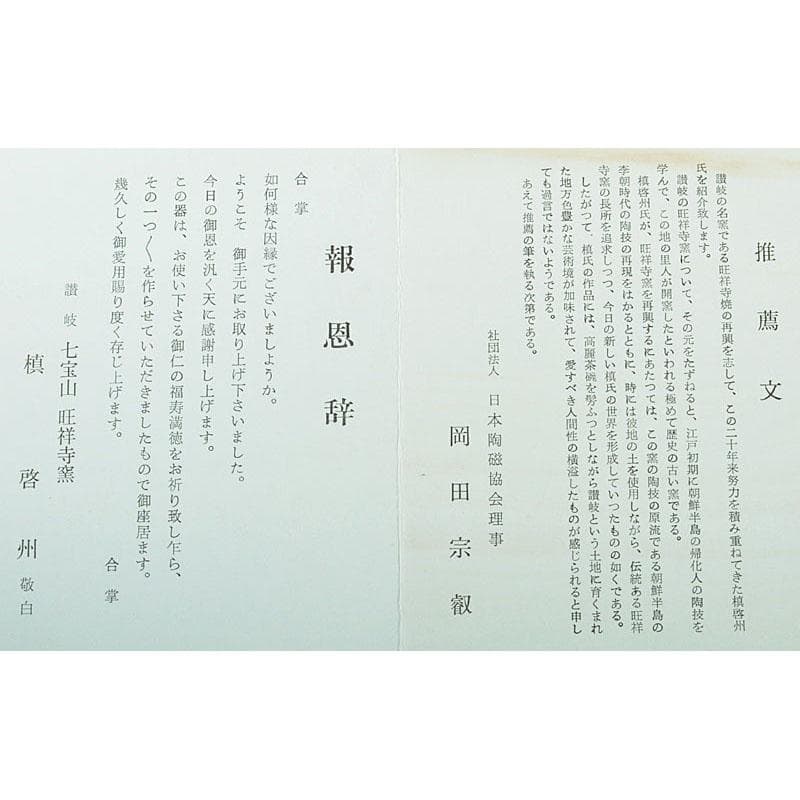 推薦文
讃岐の名窯である旺祥寺焼の再興を志して、この二十年来努力を積み重ねてきた槙啓州
氏を紹介致します。
讃岐の旺祥寺窯について、その元をたずねると、江戸初期に朝鮮半島の帰化人の陶技を
学んで、この地の里人が開窯したといわれる極めて歴史の古い窯である。
槙啓州氏が、旺祥寺窯を再興するにあたつては、この窯の陶技の原流である朝鮮半島の
李朝時代の陶技の再現をはかるとともに、時には彼地の土を使用しながら、伝統ある旺祥
寺窯の長所を追求しつつ、今日の新しい槙氏の世界を形成していつたものの如くである。
したがつて、槙氏の作品には、高麗茶碗を髣ふつとしながら讃岐という土地に育くまれ
た地方色豊かな芸術境が加味されて、愛すべき人間性の横溢したものが感じられると申し
ても過言ではないようである。
あえて推薦の筆を執る次第である。
社団法人 日本陶磁協会理事
岡田宗叡
報恩辞
合掌
如何様な因縁でございましようか。
ようこそ 御手元にお取り上げ下さいました。
今日の御恩を汎く天に感謝申し上げます。
この器は、お使い下さる御仁の福寿満徳をお祈り致し乍ら、
その一つ〱を作らせていただきましたもので御座居ます。
幾久しく御愛用賜り度く存じ上げます。
合掌
讃岐 七宝山 旺祥寺窯
槙啓州 敬白